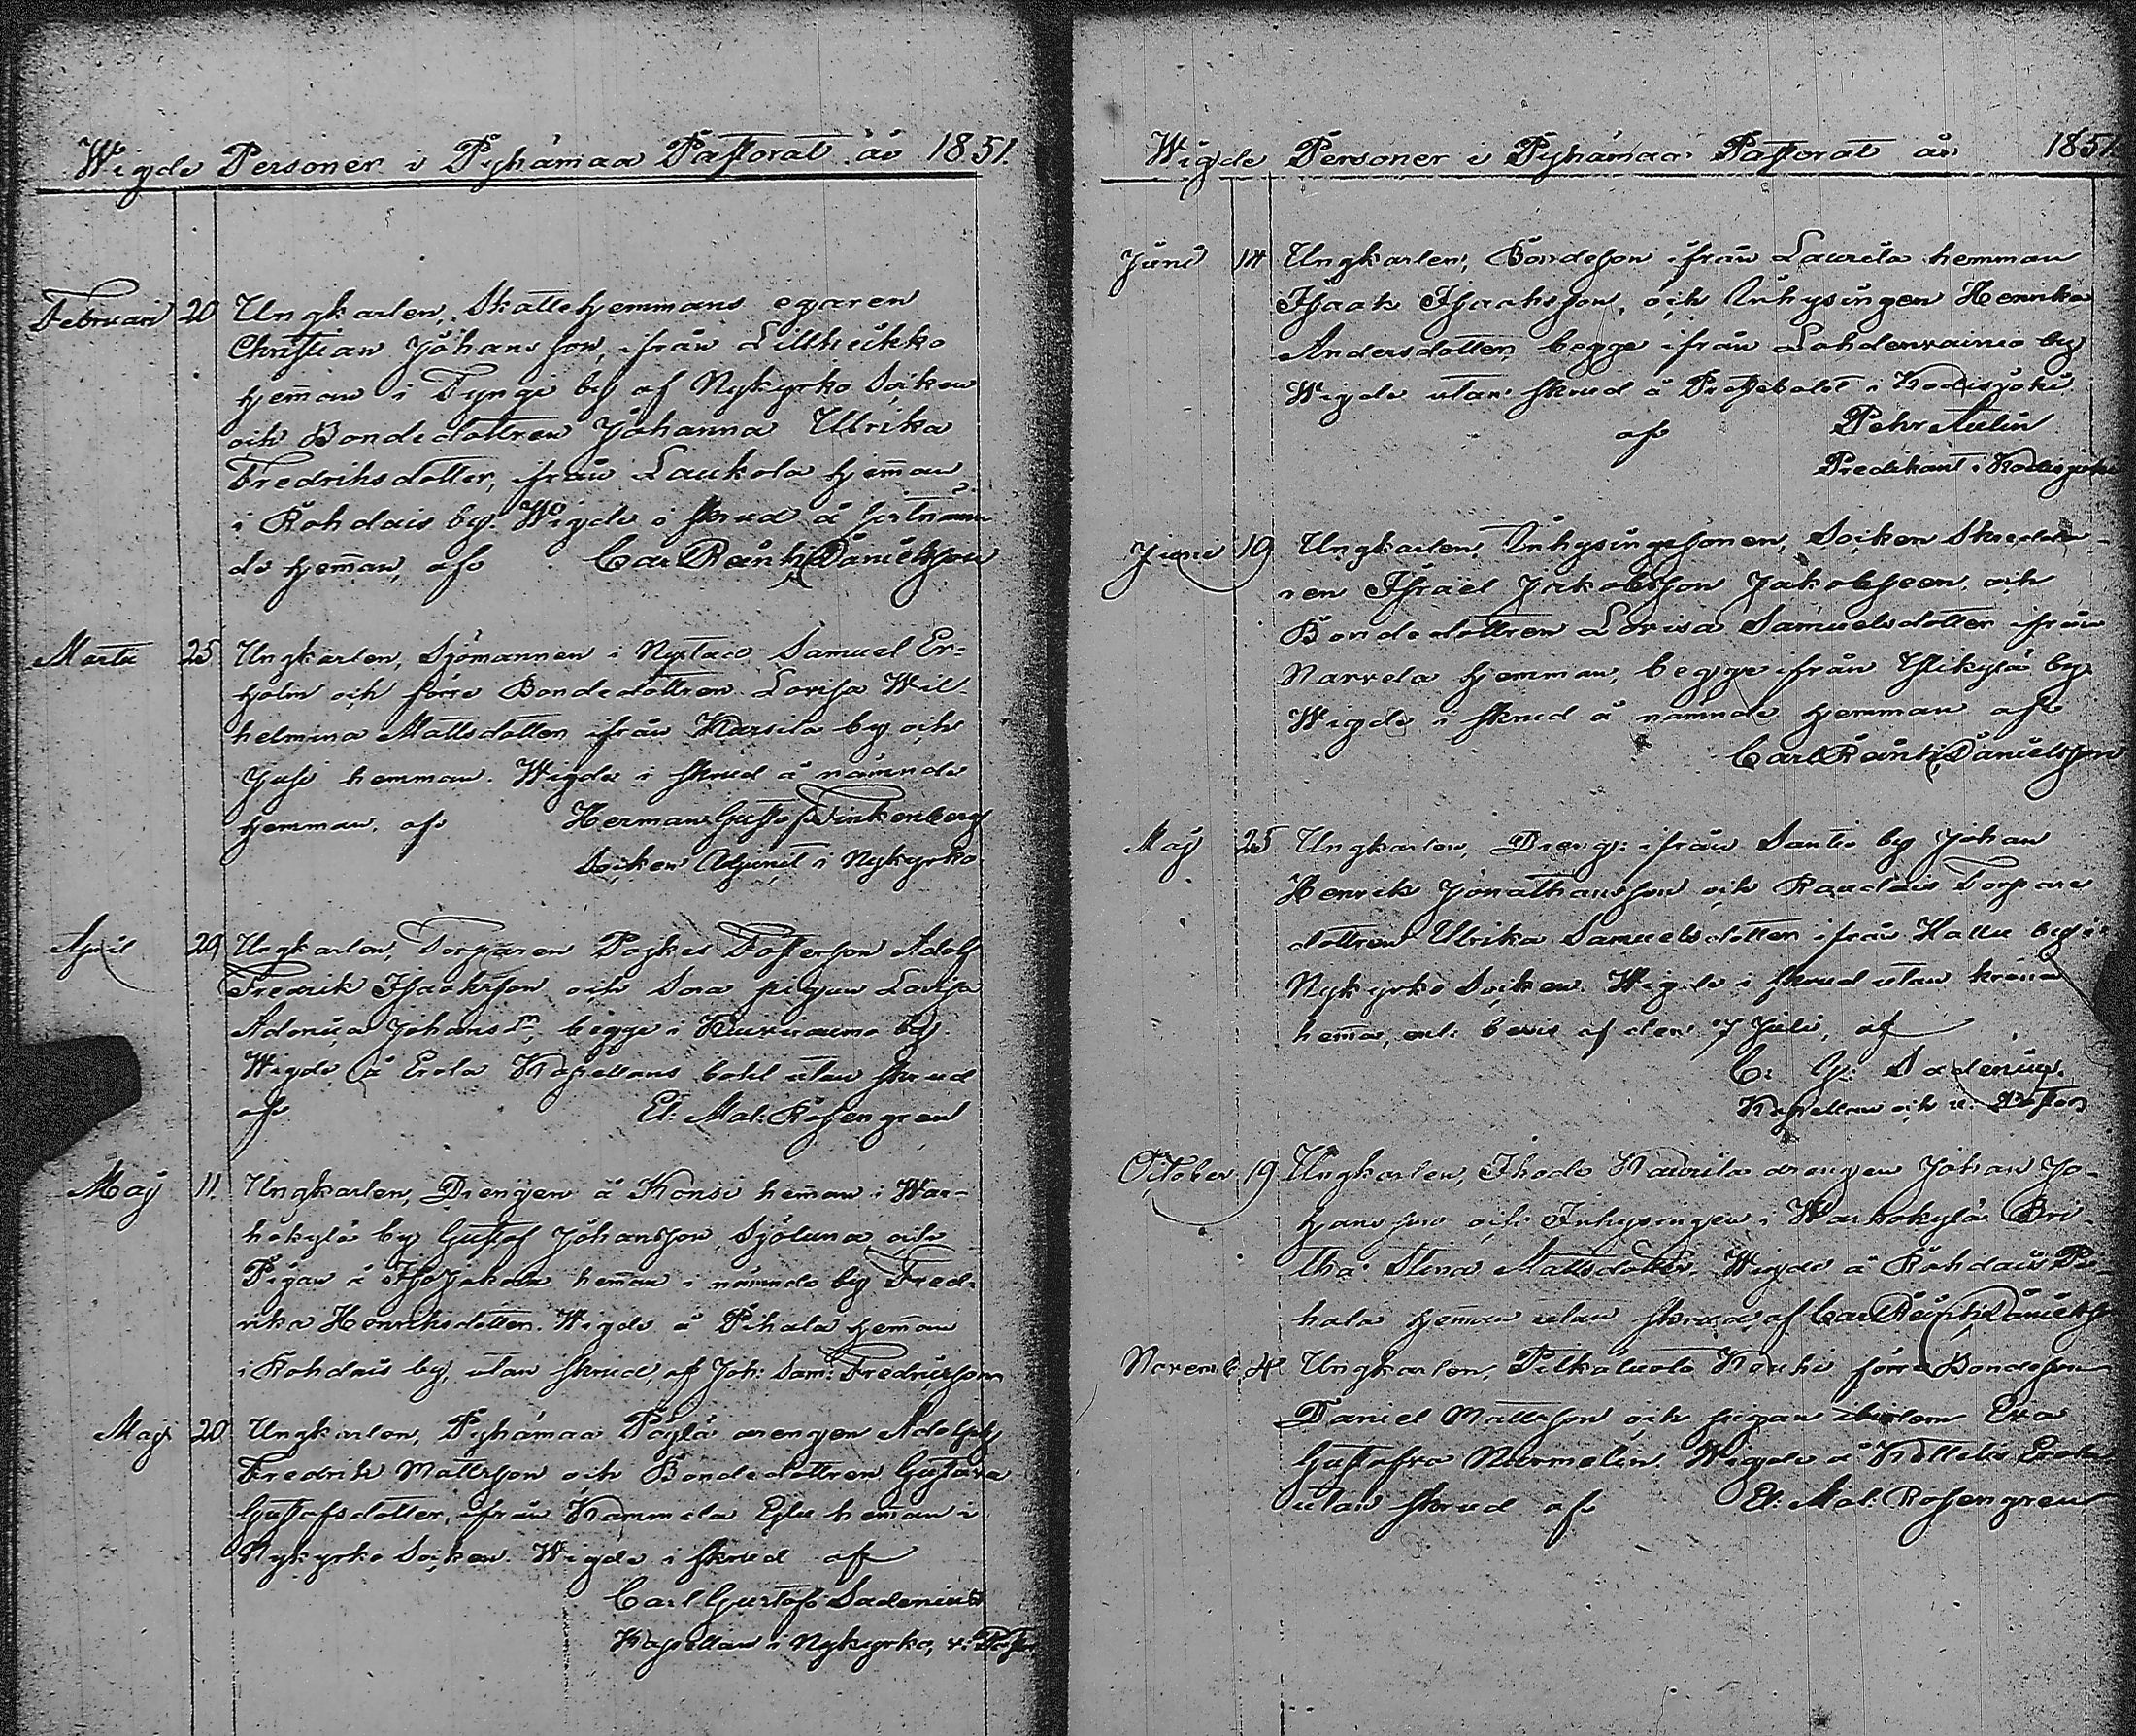 Wigde Personer i Pyhämaa Pastorat år 1851.
Februari 20 Ungkarlen, Skattehemmans egaren
Christian Johansson, ifrån Lillheikko
hemman i Tynge by af Nykyrko Socken
och Bondedottren Johanna Ulrika
Fredriksdotter, ifrån Laukola hemman
i Rohdais by. Wigde i skrud å
de hemman, af Carl Ränk Danielsson
Martii 25 Ungkarlen, Sjömannen i Nystad Samuel Er=
holm och förre Bondedottren Lovisa Wil-
helmina Mattsdotter ifrån Warsila by och
Jusi hemman. Wigde i skrud å nämnde
hemman, af Herman Gustaf Finkenberg
Socken Adjunct i Nykyrko
April 29 Ungkarlen, Torparen Adolf
Fredrik Isacksson och pigan Lovisa
Johansdr, begge i by.
Wigde å Erola Kapellans bohl utan skrud
af El: Mal: Rosengren
Maij 11. Ungkarlen, Drengen å Konsi hemman i War-
hokylä by Gustaf Johansson Sjöluna och
Pigan å hemman i nämnde by Fred-
rika Henriksdotter. Wigde å Pihala hemman
i Rohdais by, utan skrud, af Joh: Sam: Fredricsson
Maji 20 Ungkarlen, Pyhämaa drengen Adolph
Fredrik Mattsson och Bondedottren Gustava
Gustafsdotter, ifrån Kammela hemman i
Nykyrko Socken. Wigde i skrud af
Carl Gustaf Sadenius
Kapellan i Nykyrko, v: Pastor
Wigde Personer i Pyhämaa Pastorat år 1851.
Juni 14 Ungkarlen, Bondeson ifrån Laurila hemman
Isaak Isaaksson, och Inhysingen Henrika
Andersdotter begge ifrån Lahdenvainio by
Wigde utan skrud å i Kodisjoki
af Pehr Aulin
Predikant i Kodisjoki
Junii 19 Ungkarlen, Inhysingesonen, Socken Skredda-
ren Israel Jakobsson Jakobsson och
Bondedottren Lovisa Samuelsdotter ifrån
Narvela hemman, begge ifrån Ylikylä by.
Wigde i skrud å nämnde hemman af
Carl Ränk Danielsson
Maij 25 Ungkarlen, Dreng: ifrån Santio by Johan
Henrik Jonathansson och Torpare
dottren Ulrika Samuelsdotter ifrån Hallu by i
Nykyrko Socken. Wigde i skrud utan krona
hemma, enl: bevis af den 7 Julii, af
C. G. Sadenius.
Kapellan och v. Pastor
October 19 Ungkarlen, Ihode Kaurila drengen Johan Jo-
hansson och Inhysingen i Warhokylä Bri-
tha Stina Mattsdotter. Wigde å Rohdais Pi-
hala hemman utan skrud, af Carl Ränk Danielsson
Novemb. 4 Ungkarlen, Pitkäluoto Kouhi förre Bondeson
Daniel Mattsson och pigan Eva
Gustafva Nurmelin. Wigde å Erola
utan skrud af El: Mal: Rosengren